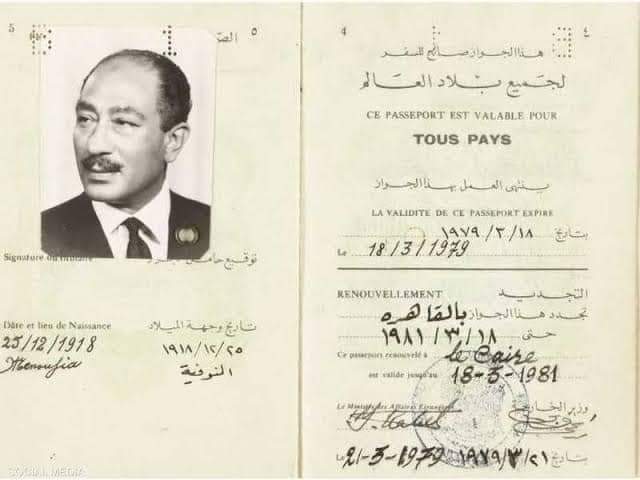 5
٥
الص
Signature du titulaire
توقيع حامل
Dâte et lieu de Naissance
تاريخ وجهة الميلاد
25/12/1918
١٩١٨/١٢/٢٥
Menoufia
المنوفية
SOCIAL MEDIA
4
٤
هذا الجواز صالح للسفر
لجميع بلاد العالم
CE PASSEPORT EST VALABLE POUR
TOUS PAYS
ينتهى العمل بهذا الجواز
LA VALIDITE DE CE PASSEPORT EXPIRE
بتاريخ ١٩٧٩/٣/١٨
Le 18/3/1979
RENOUVELLEMENT
التجديد
تجدد هذا الجواز بالقاهره
حتى ١٩٨١/٣/١٨
Ce passeport renouvelé à le Caire
est valide jusqu'au 18-3-1981
Le Ministère des Affaires Etrangères
وزير الخارجية
Le 21-3-1979
١٩٧٩/٣/٢١ بتاريخ